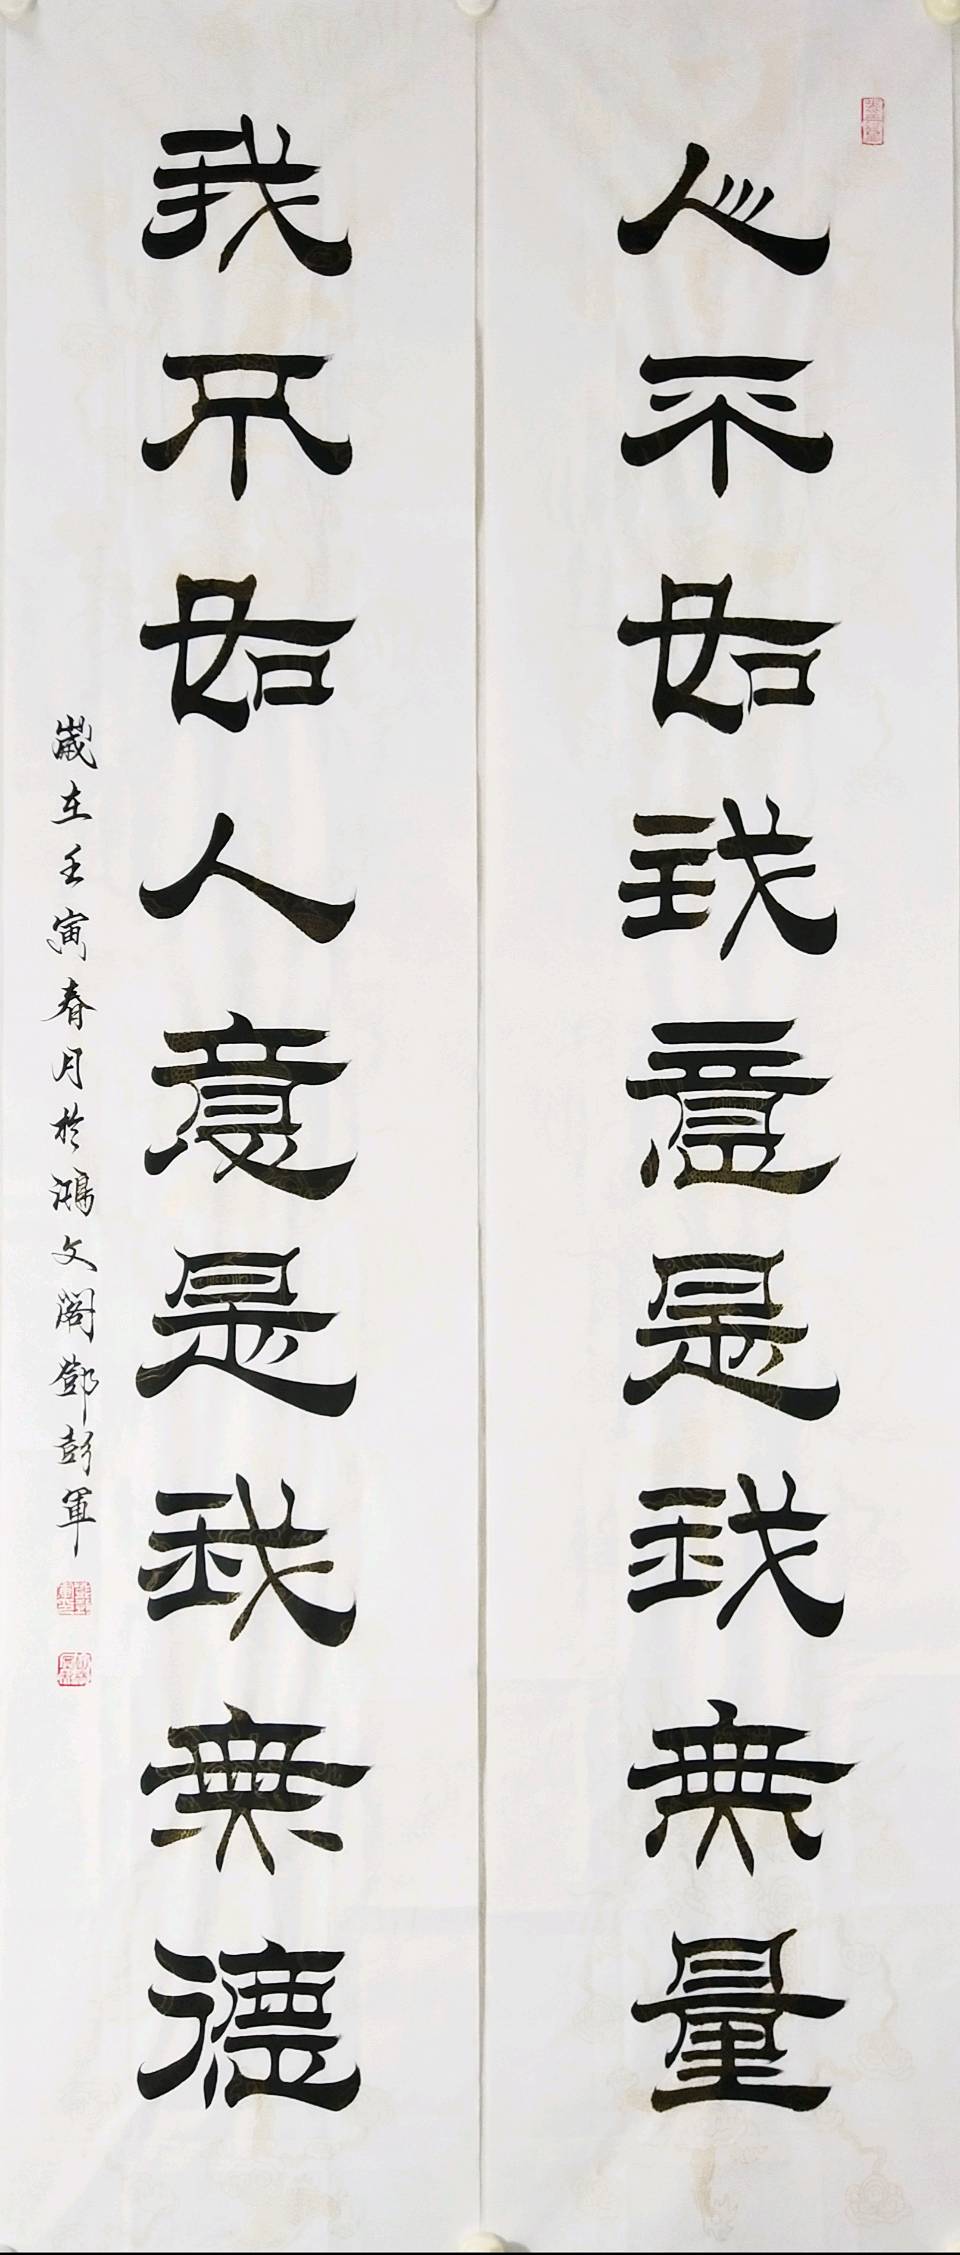 人不如我意是我無量
我不如人意是我無德
歲在壬寅春月於鴻文閣鄧彭軍